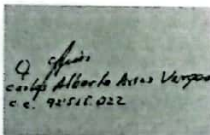 Carlos Alberto Arias Vergara
c.c. 92515.022